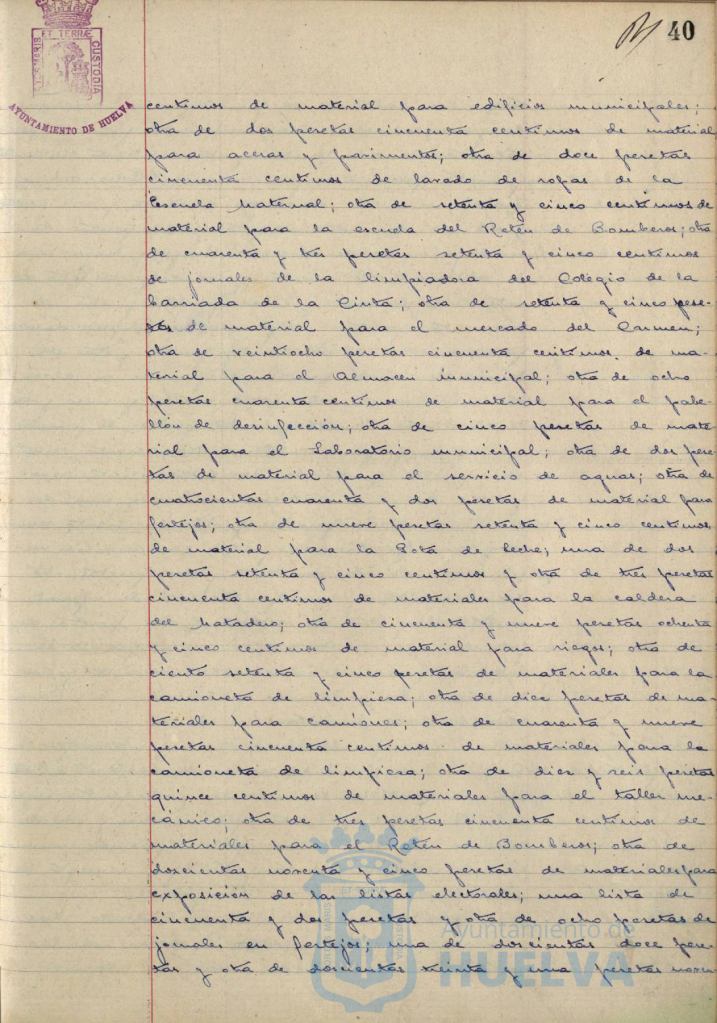 40
ET TERRÆ
CUSTODIA
AYUNTAMIENTO DE HUELVA
centimos de material para edificios municipales;
otra de dos pesetas cincuenta centimos de material
para aceras y pavimentos; otra de doce pesetas
cincuenta centimos de lavado de ropas de la
Escuela Maternal; otra de setenta y cinco centimos de
material para la escuela del Retén de Bomberos; otra
de cuarenta y tres pesetas setenta y cinco centimos
de jornales de la limpiadora del Colegio de la
barriada de la Cinta; otra de setenta y cinco pese-
tas de material para el mercado del Carmen;
otra de veintiocho pesetas cincuenta centimos de ma-
terial para el Almacen municipal; otra de ocho
pesetas cuarenta centimos de material para el pabe-
llón de desinfección; otra de cinco pesetas de mate-
rial para el Laboratorio municipal; otra de dos pese-
tas de material para el servicio de aguas; otra de
cuatrocientas cuarenta y dos pesetas de material para
festejos; otra de nueve pesetas setenta y cinco centimos
de material para la Gota de Leche; una de dos
pesetas setenta y cinco centimos y otra de tres pesetas
cincuenta centimos de materiales para la caldera
del Matadero; otra de cincuenta y nueve pesetas ochenta
y cinco centimos de material para riegos; otra de
ciento setenta y cinco pesetas de materiales para la
camioneta de limpiesa; otra de diez pesetas de ma-
teriales para camiones; otra de cuarenta y nueve
pesetas cincuenta centimos de materiales para la
camioneta de limpiesa; otra de diez y seis pesetas
quince centimos de materiales para el taller me-
cánico; otra de tres pesetas cincuenta centimos de
materiales para el Retén de Bomberos; otra de
doscientas noventa y cinco pesetas de materiales para
exposición de las listas electorales; una lista de
cincuenta y dos pesetas y otra de ocho pesetas de
jornales en festejos; una de doscientas doce pese-
tas y otra de doscientas treinta y una pesetas noven
Ayuntamiento de
HUELVA